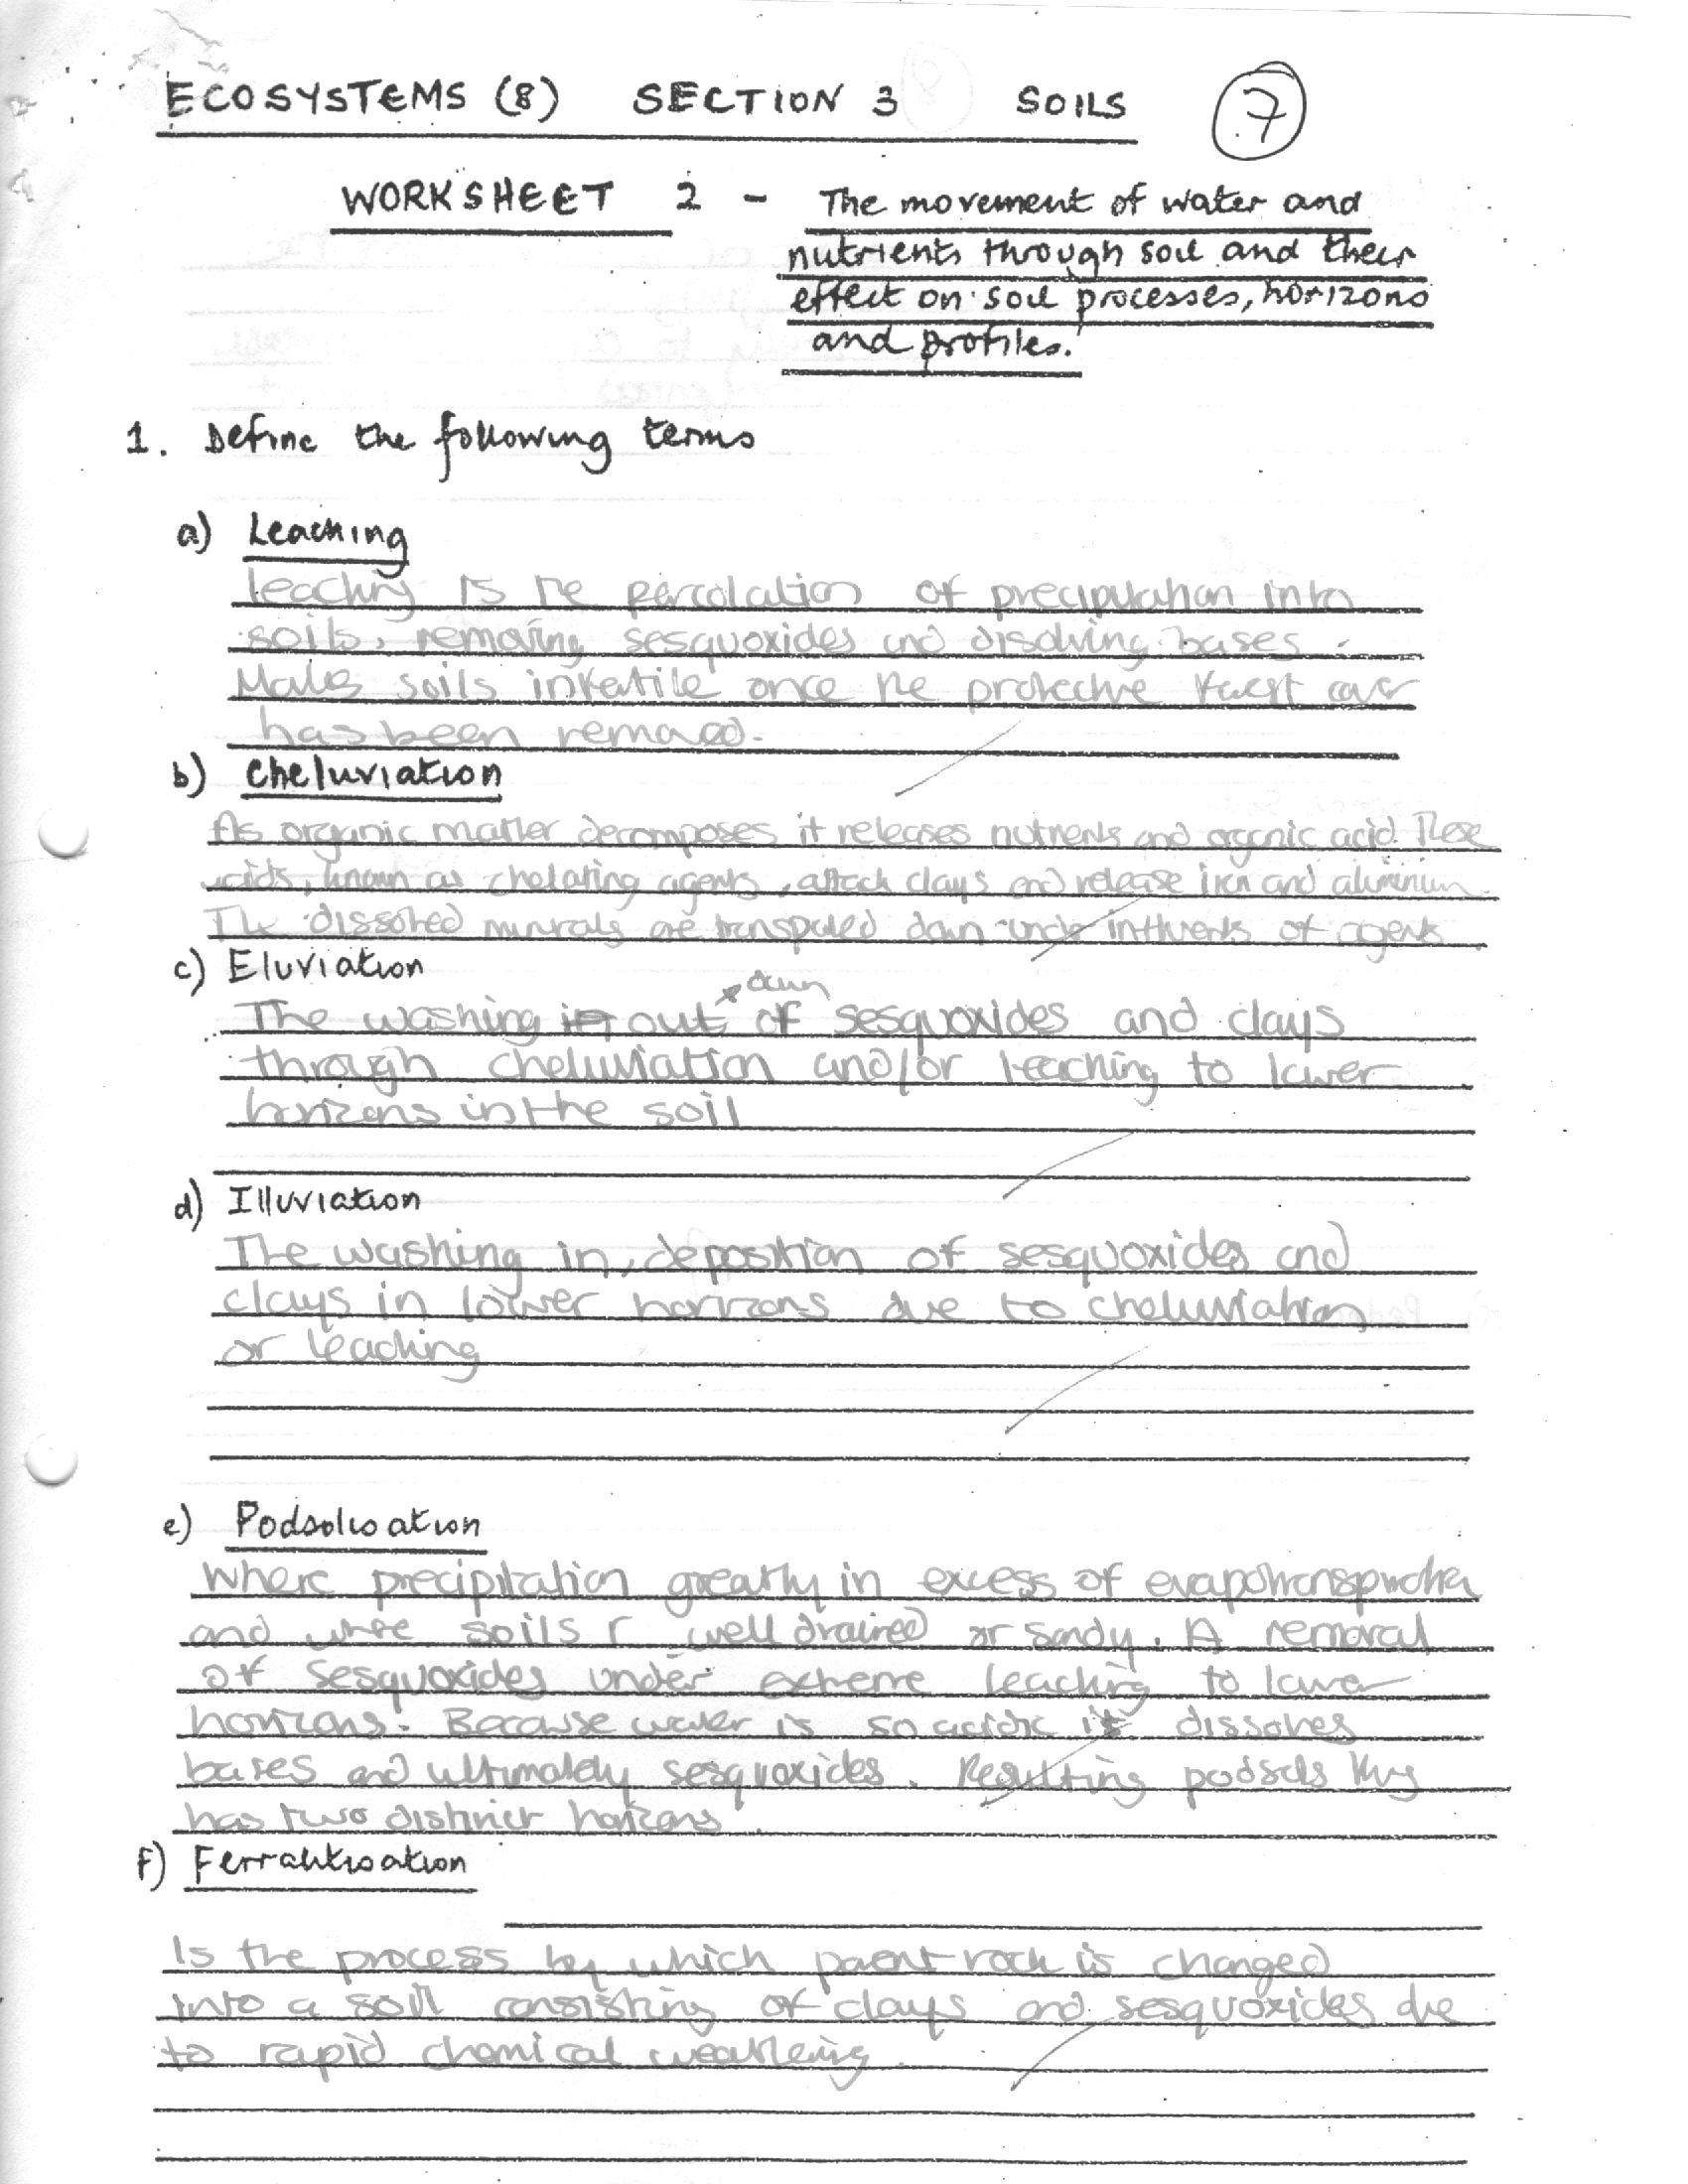 ECOSYSTEMS (8) SECTION 3 SOILS 7
WORKSHEET 2 - The movement of water and
nutrients through soil and their
effect on soil processes, horizons
and profiles.
1. Define the following terms
a) Leaching
leaching is the percolation of precipitation into
soils, removing sesquoxides and disolving bases.
Makes soils infertile once the protective forest cover
has been removed.
b) Cheluviation
As organic matter decomposes it releases nutrients and organic acid. These
acids, known as chelating agents, attack clays and release iron and aluminium.
The dissolved minerals are transported down under of agents
c) Eluviation
down
The washing out of sesquoxides and clays
through cheluviation and/or leaching to lower
horizons in the soil
d) Illuviation
The washing in, deposition of sesquoxides and
clays in lower horizons due to cheluviation
or leaching
e) Podsolisation
Where precipitation greatly in excess of evapotranspiration
and where soils r well drained or sandy. A removal
of sesquoxides under extreme leaching to lower
horizons. Because water is so acidic it dissolves
bases and ultimately sesquoxides. Resulting podsols
has two distinct horizons.
f) Ferralitisation
Is the process by which parent rock is changed
into a soil consisting of clays and sesquoxides due
to rapid chemical weathering.